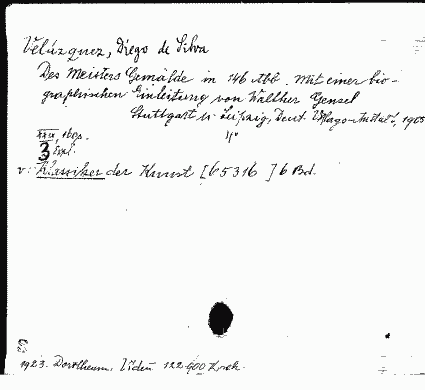 Velázquez, Diego de Silva
Des Meisters Gemälde in 146 Abb. Mit einer bio-
graphischen Einleitung von Walther Gensel
Stuttgart u. Leipzig, Deut. Verlags-Anstalt, 1905
XXIX, 160 p. 4°
3 Expl.
v: Klassiker der Kunst [65316] 6 Bd.
1923. Dorotheum. 122.900 Kron.